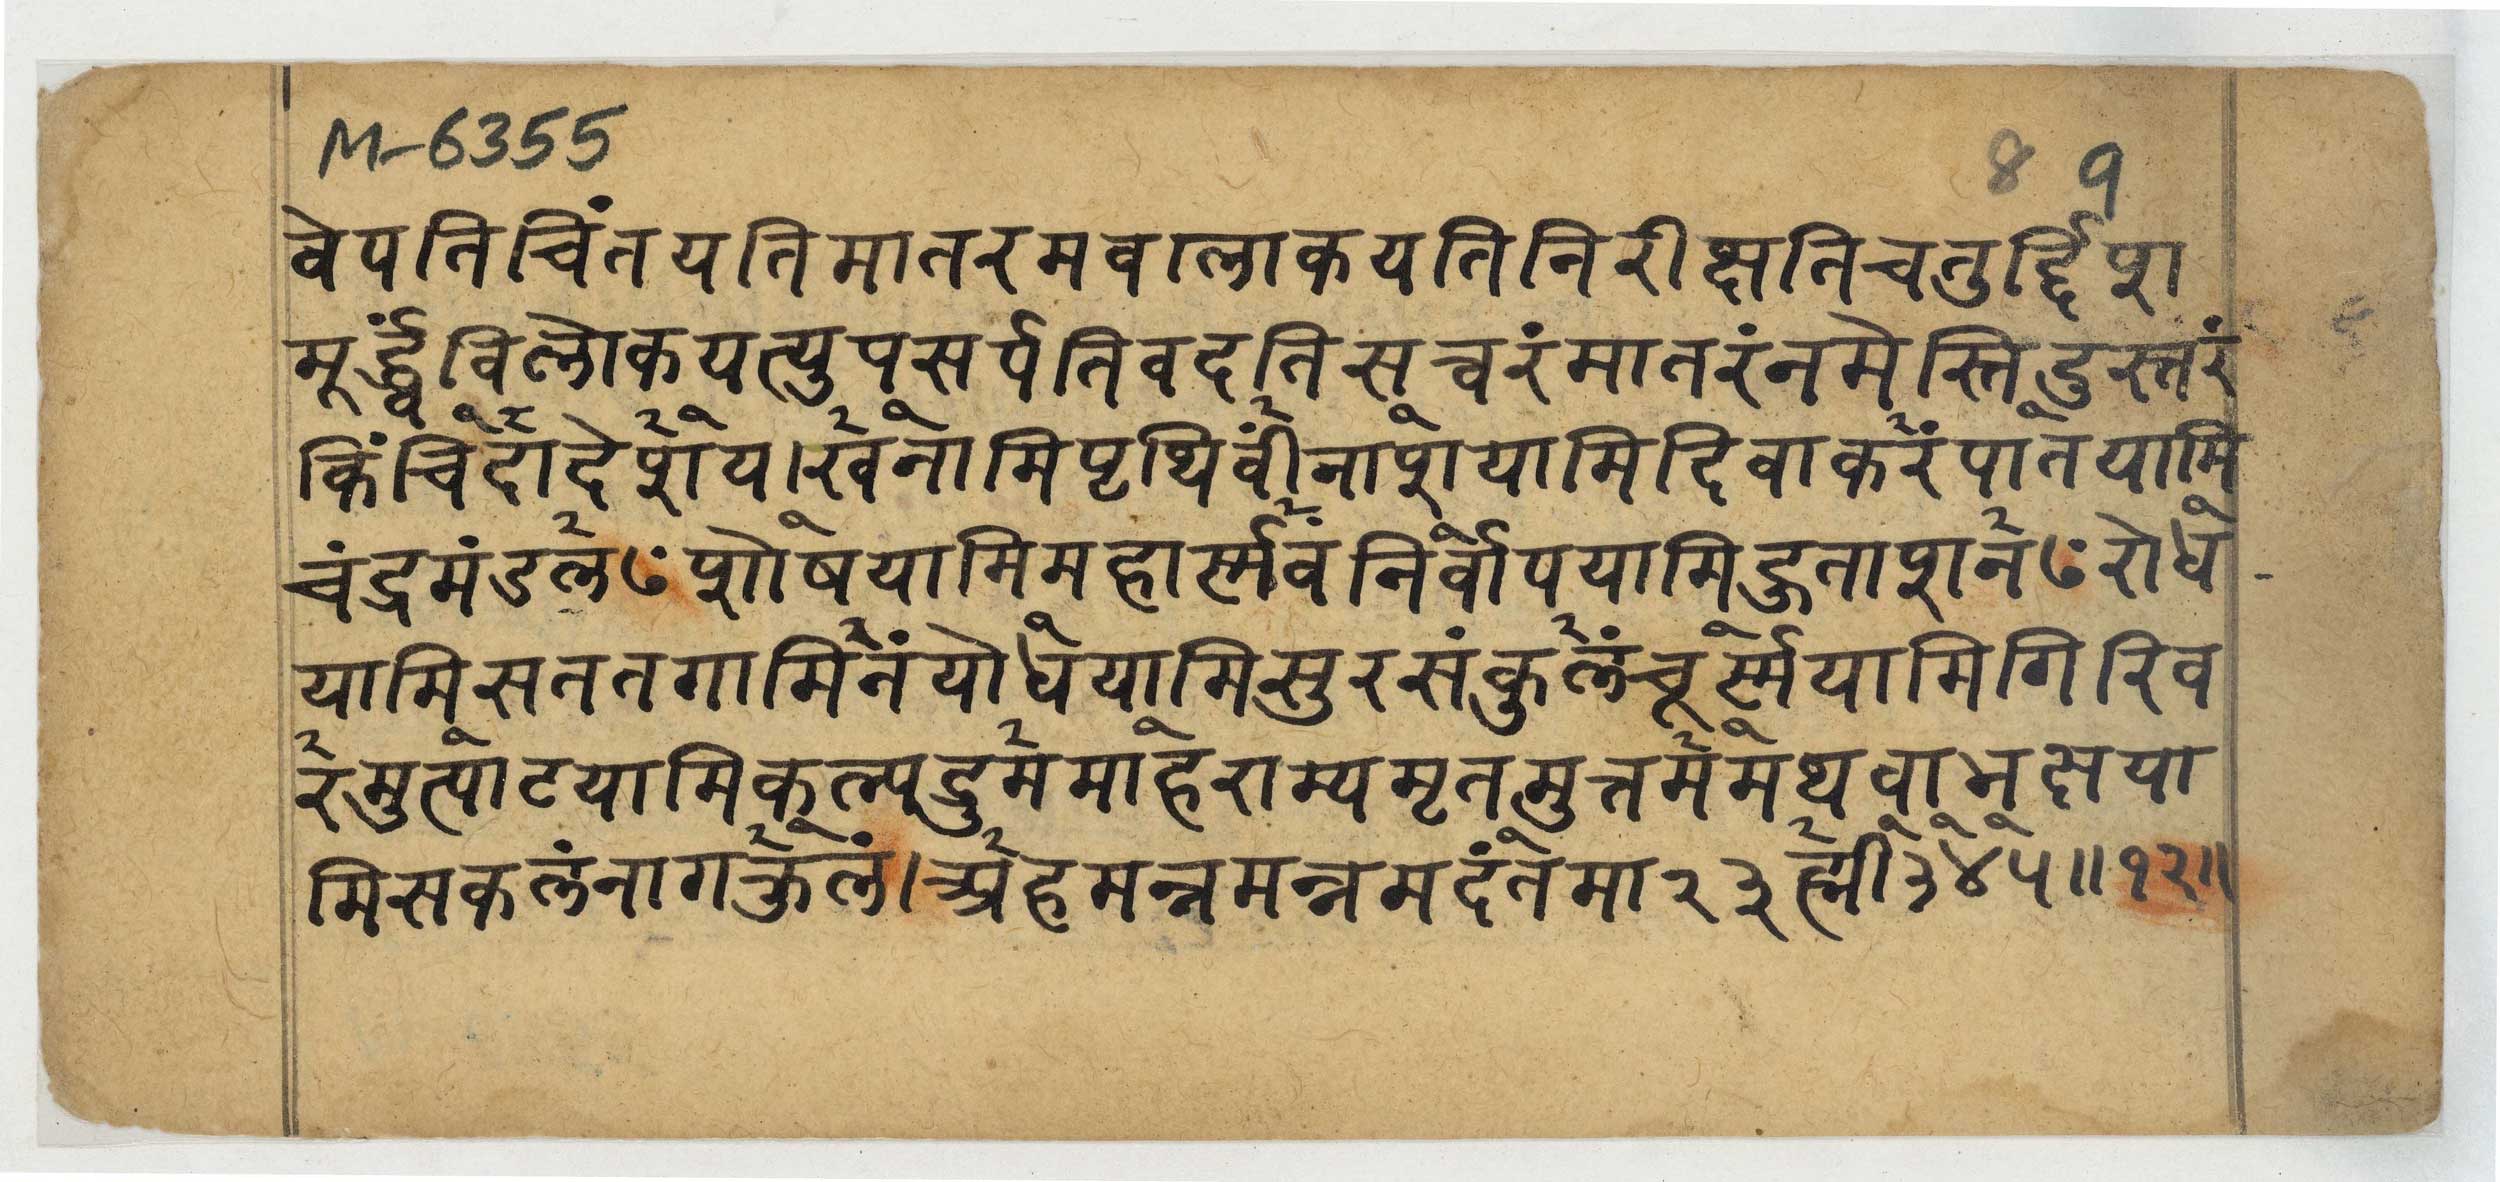 M-6355
8 9
वेपतिचिंतयतिमातरमवालाकयतिनिरीक्षतिचतुर्द्दिशा
मूर्द्ध्वंविलोकयत्युपसर्पतिवदतिसत्वरंमातरंनमेस्तिदुस्तरं
किंचिदादेशय।खनामिपृथिवींनाशयामिदिवाकरंपातयामि
चंद्रमंडलꣳशोषयामिमहार्स्मवंनिर्वापयामिहुताशनꣳरोध
यामिसततगामिनंयोधयामिसुरसंकुलंचूर्स्मयामिगिरिव
रमुत्पाटयामिकल्पद्रुममाहराम्यमृतमुत्तममथवाभक्षया
मिसकलंनागकुलं।अहमन्नमन्नमदंतमा२३द्मी३४५॥१२॥